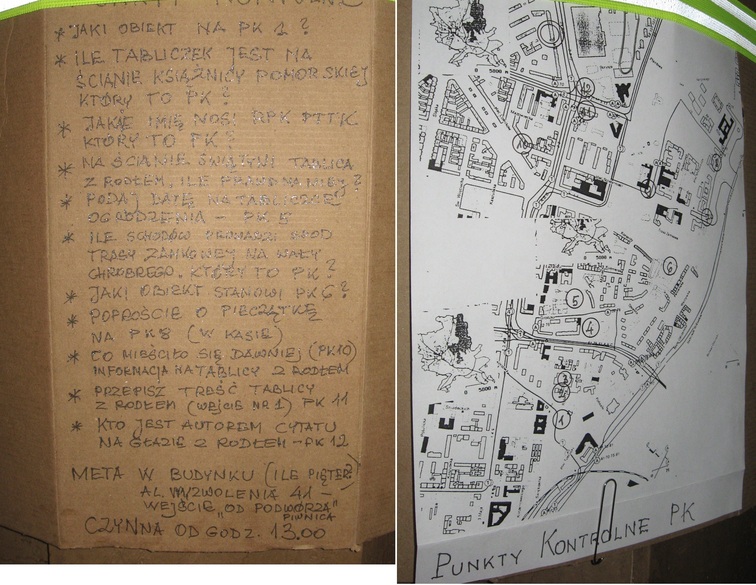 * JAKI OBIEKT NA PK 1?
* ILE TABLICZEK JEST NA
ŚCIANIE KSIĄŻNICY POMORSKIEJ
KTÓRY TO PK?
* JAKIE IMIĘ NOSI RPK PTTK
KTÓRY TO PK?
* NA ŚCIANIE ŚWIĄTYNI TABLICA
Z RODŁEM, ILE NA NIEJ?
* PODAJ DATĘ NA TABLICZCE
OGRODZENIA - PK 5
* ILE SCHODÓW PROWADZI SPOD
TRASY ZAMKOWEJ NA WAŁY
CHROBREGO. KTÓRY TO PK?
* JAKI OBIEKT STANOWI PK 6?
* POPROŚCIE O PIECZĄTKĘ
NA PK 8 (W KASIE)
* CO MIEŚCIŁO SIĘ DAWNIEJ (PK10)
INFORMACJA NA TABLICY Z RODŁEM
* PRZEPISZ TREŚĆ TABLICY
Z RODŁEM (WEJŚCIE NR 1) PK 11
* KTO JEST AUTOREM CYTATU
NA GŁAZIE Z RODŁEM - PK 12
META W BUDYNKU (ILE PIĘTER?)
AL. WYZWOLENIA 41 -
WEJŚCIE „OD PODWÓRZA"
PIWNICA
CZYNNA OD GODZ. 13.00
6
5
4
3
1
PUNKTY KONTROLNE PK